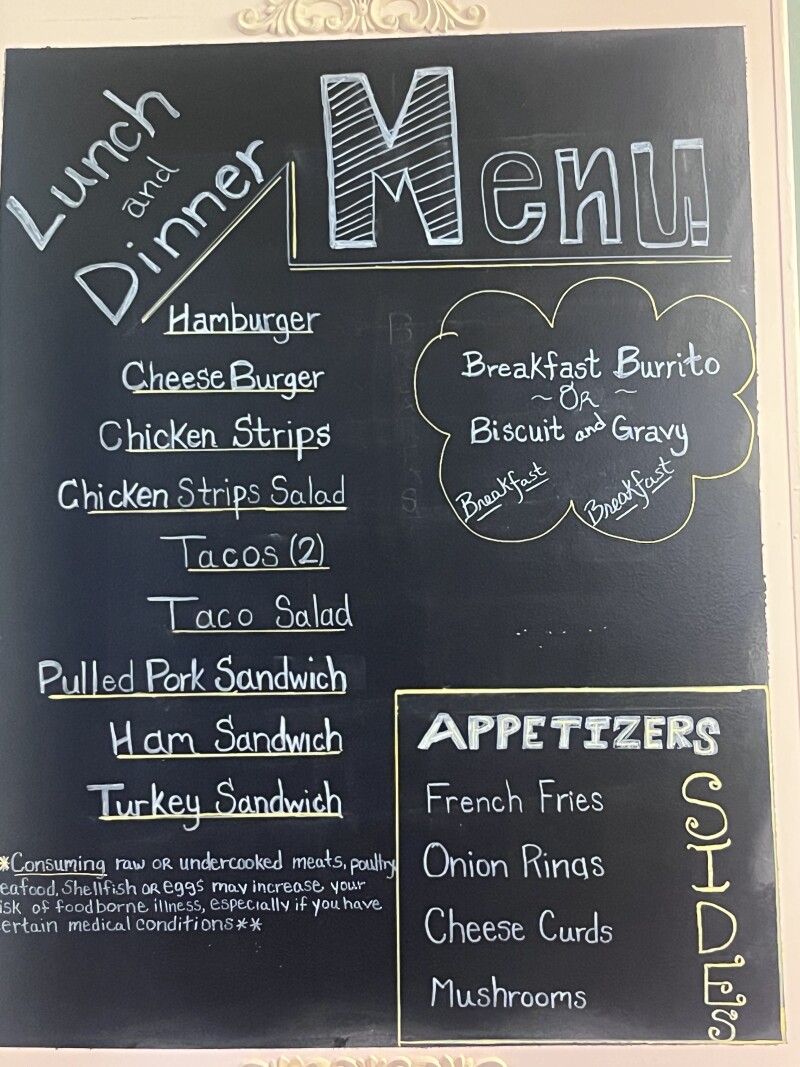 Lunch
and
Dinner
Menu
Hamburger
Cheese Burger
Chicken Strips
Chicken Strips Salad
Tacos (2)
Taco Salad
Pulled Pork Sandwich
Ham Sandwich
Turkey Sandwich
*Consuming raw OR undercooked meats, poultry
eafood, Shellfish OR eggs may increase your
isk of foodborne illness, especially if you have
ertain medical conditions**
Breakfast Burrito
~ OR ~
Biscuit and Gravy
Breakfast Breakfast
APPETIZERS
French Fries
Onion Rings
Cheese Curds
Mushrooms
SIDES